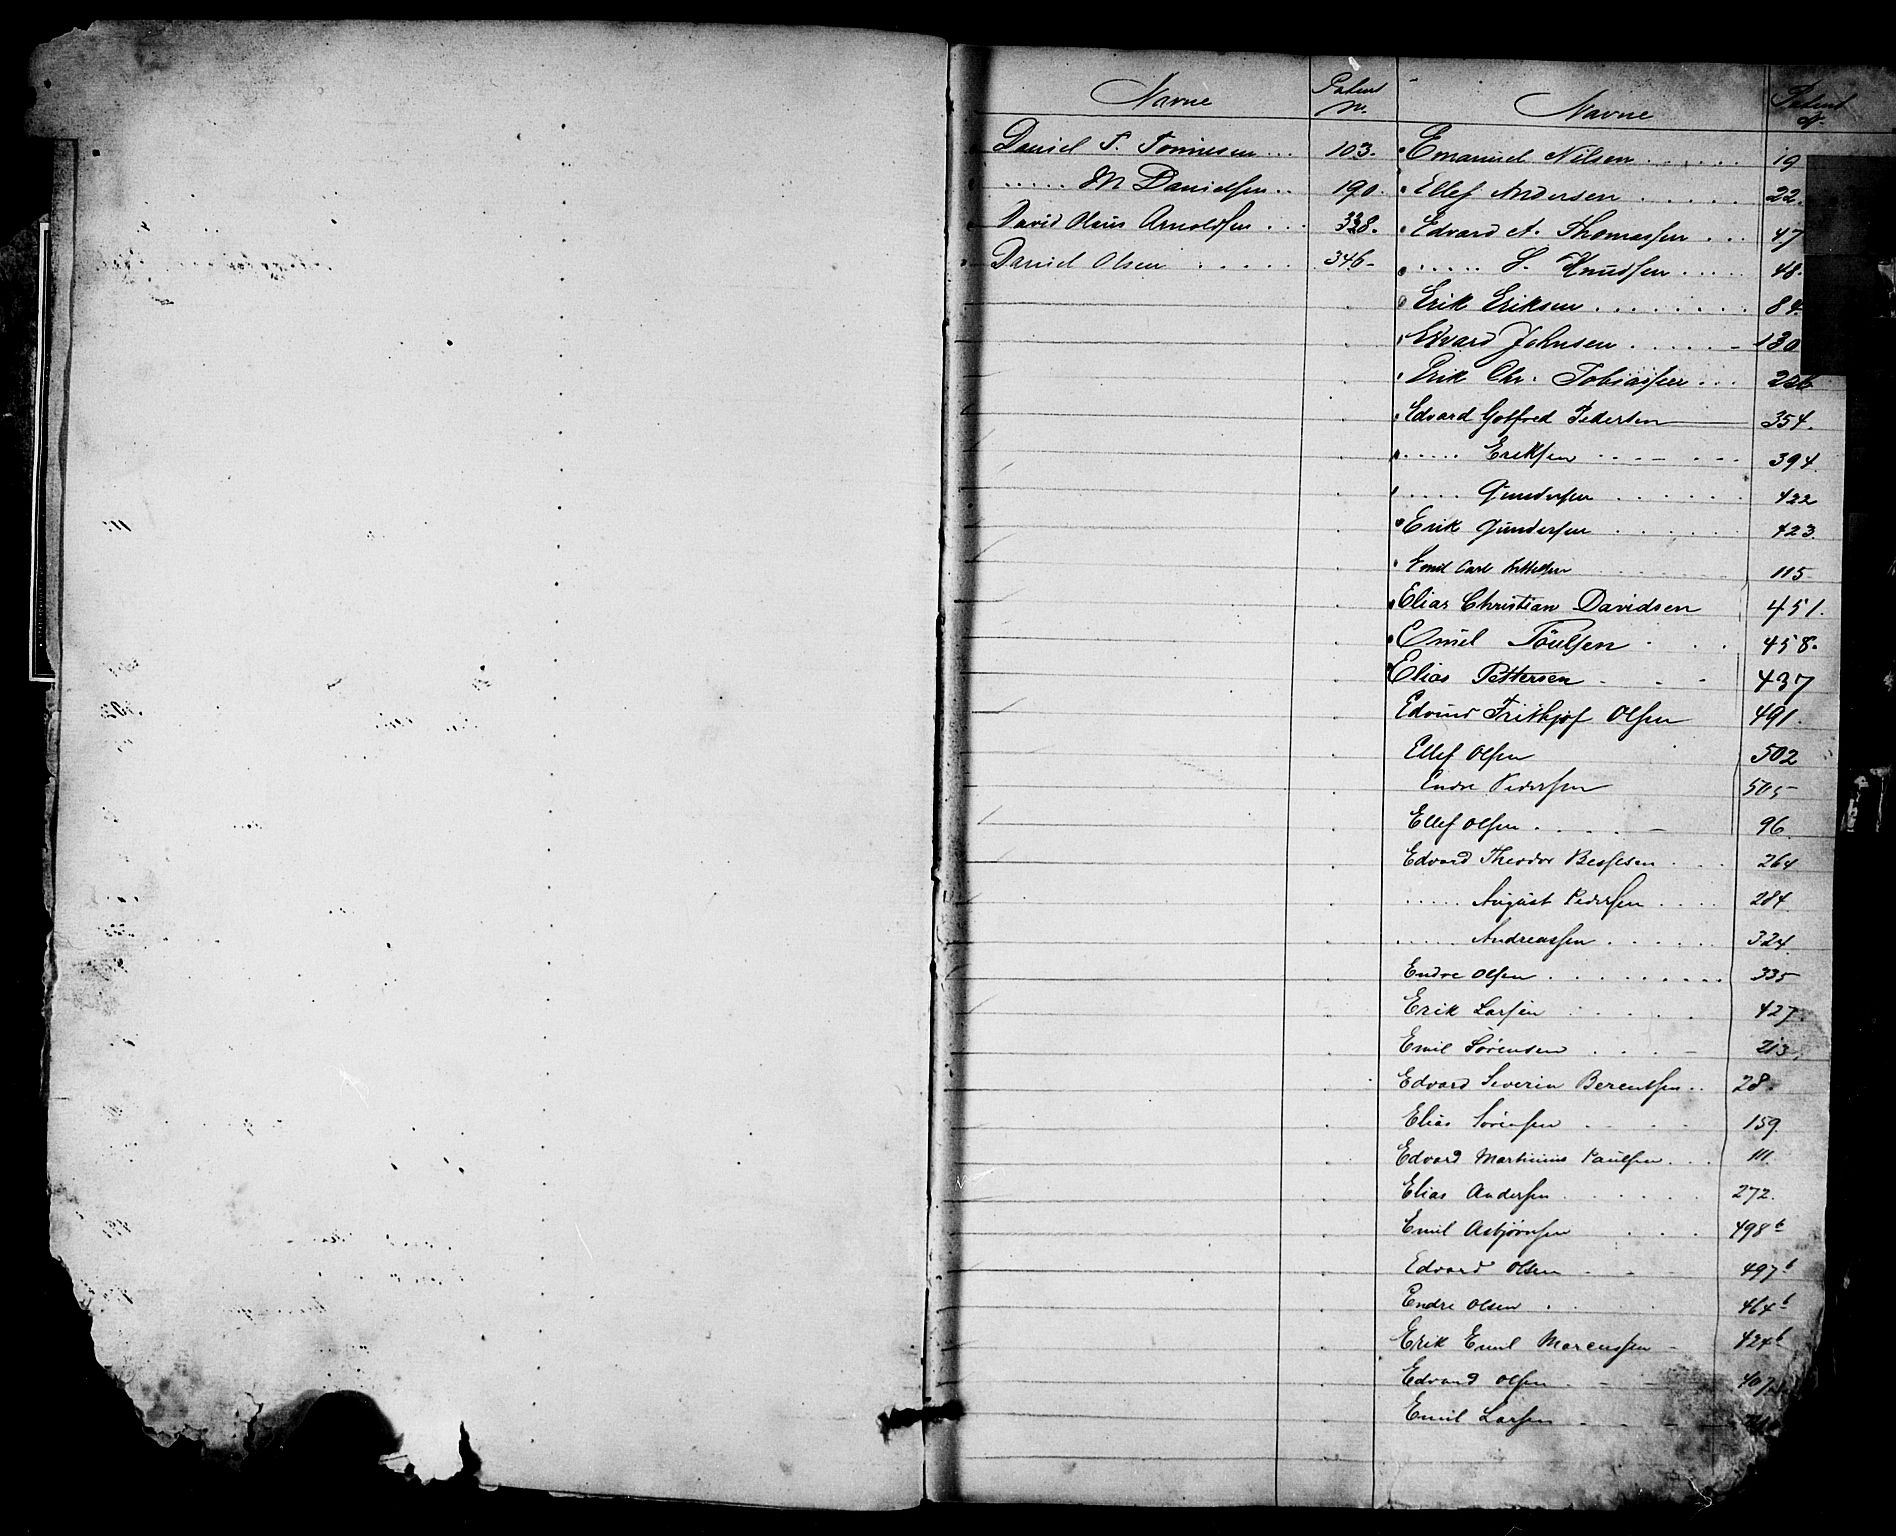 Navne Patent №.
Daniel T. Tønnesen... 103.
..... M Danielsen.. 190.
David Olaus Arnoldsen... 338.
Daniel Olsen ..... 346-
Navne Patent №
Emanuel Nilsen ...... 19
Ellef Andersen ..... 22.
Edvard A. Thomassen ... 47
..... S. Knudsen ..... 48.
Erik Eriksen ........ 84.
Edvard Johnsen ...... 130
Erik Chr. Tobiassen ...
Edvard Gotfred Pedersen 354.
..... Eriksen ...... 394.
..... Gundersen ...... 422
Erik Gundersen ...... 423.
Carl 115-
Elias Christian Davidsen 451.
Emil 458.
Elias Pettersen - - - 437
Edvind Frithjof Olsen 491.
Ellef Olsen 502
Endre Pedersen 505-
Ellef Olsen ..... 96.
Edvard Theodor Bessesen ... 264
..... August Pedersen .... 284.
..... Andreassen ...... 324.
Endre Olsen ......... 335-
Erik Larsen ..... 427.
Emil Sørensen .... 213.
Edvard Severin Berentsen.. 28.
Elias Sørensen .... 159.
Edvard Martinius Paulsen... 111.
Elias Andersen ...... 272.
Emil Asbjørnsen ... 498 b
Edvard Olsen - - - 497 b
Endre Olsen . . 464 b
Erik Emil Marcussen - 424 b
Edvard Olsen - - -
Emil Larsen - - - -